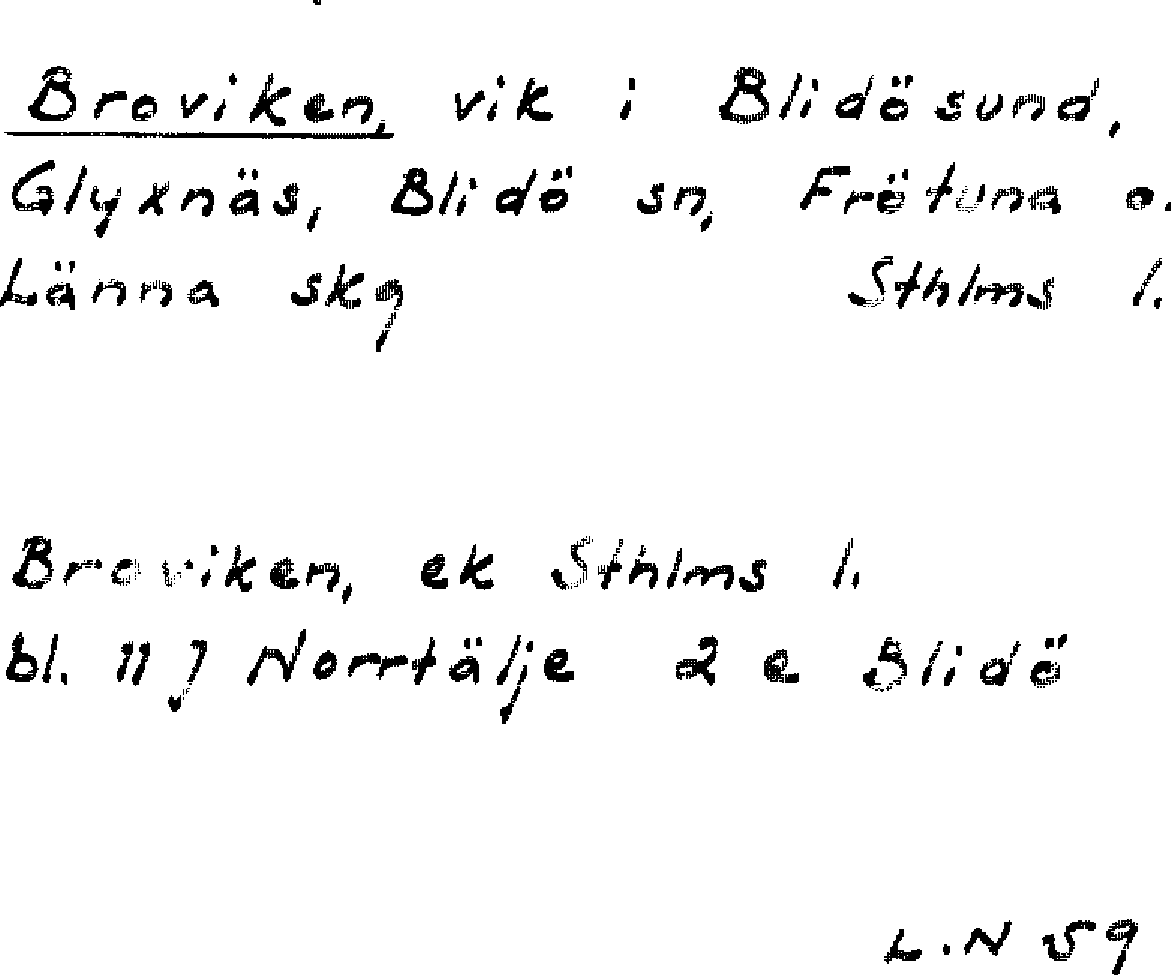 Broviken, vik i Blidösund,
Glyxnäs, Blidö sn, Frötuna o.
Länna skg Sthlms l.
Broviken, ek Sthlms l.
bl. 11 J Norrtälje 2 e Blidö
L.N 59